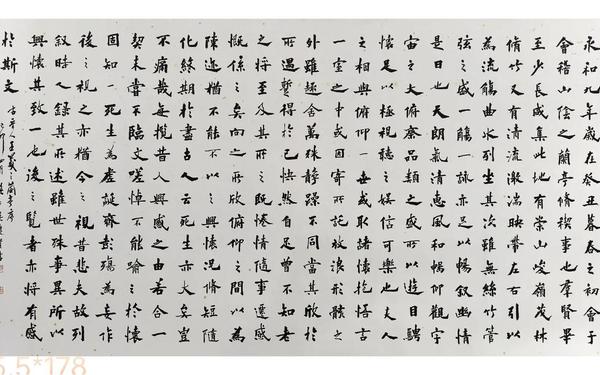 永和九年歲在癸丑暮春之初會于
會稽山陰之蘭亭脩禊事也群賢畢
至少長咸集此地有崇山峻嶺茂林
脩竹又有清流激湍映帶左右引以
為流觴曲水列坐其次雖無絲竹管
弦之盛一觴一詠亦足以暢叙幽情
是日也天朗氣清惠風和暢仰觀宇
宙之大俯察品類之盛所以遊目騁
懷足以極視聽之娛信可樂也夫人
之相與俯仰一世或取諸懷抱悟言
一室之中或因寄所託放浪形骸之
外雖趣舍萬殊靜躁不同當其欣於
所遇暫得於己怏然自足曾不知老
之將至及其所之既惓情隨事遷感
慨係之矣向之所欣俯仰之間以為
陳迹猶不能不以之興懷況脩短隨
化終期於盡古人云死生亦大矣豈
不痛哉每攬昔人興感之由若合一
契未嘗不臨文嗟悼不能喻之於懷
固知一死生為虛誕齊彭殤為妄作
後之視之亦猶今之視昔悲夫故列
叙時人錄其所述雖世殊事異所以
興懷其致一也後之覽者亦將有感
於斯文
5.5*178